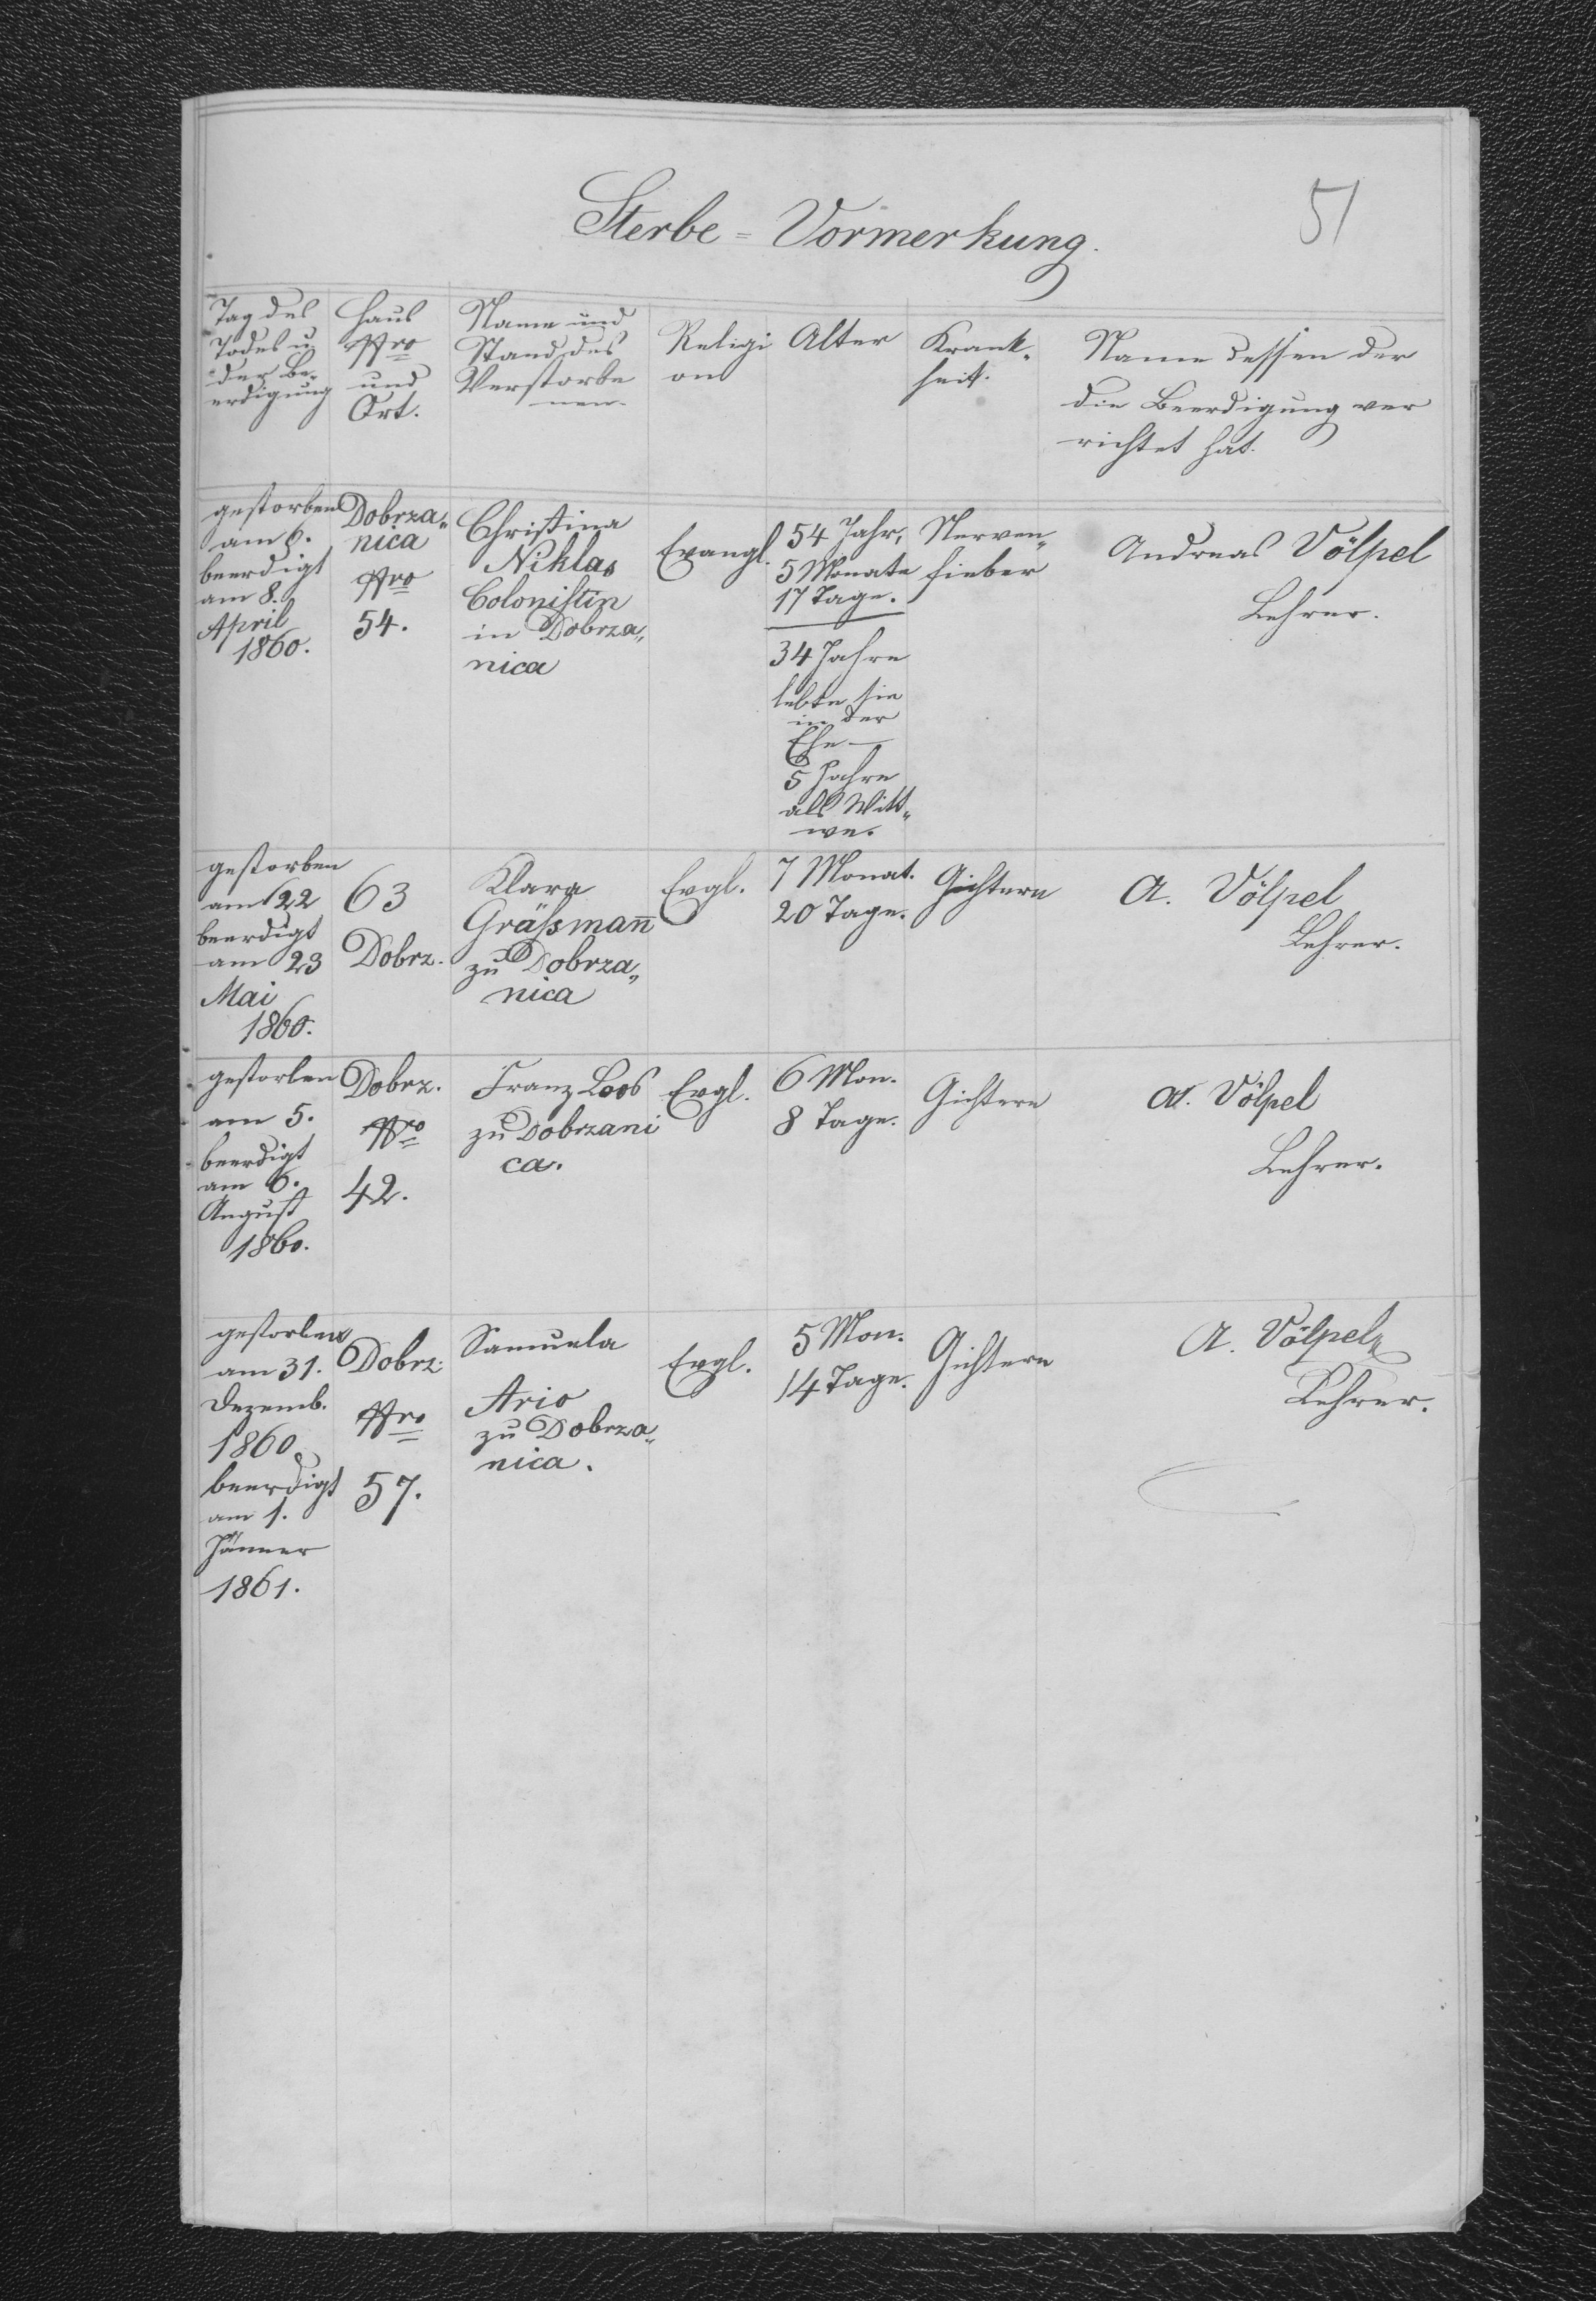 51
Sterbe = Vormerkung.
Tag des
Todes u
der Be-
erdigung
Haus
Nro
und
Ort.
Name und
Stand des
Verstorbe
nen.
Religi
on
Alter
Krank-
heit.
Name dessen der
die Beerdigung ver
richtet hat.
gestorben
am 6.
beerdigt
am 8.
April
1860.
Dobrza„
nica
Nro
54.
Christina
Niklas
Colonistin
in Dobrza„
nica
Evangl.
54 Jahr,
5 Monate
17 Tage.
34 Jahre
lebte sie
in der
Ehe —
5 Jahre
als Witt„
we.
Nerven„
fieber
Andreas Völpel
Lehrer.
gestorben
am 22
beerdigt
am 23
Mai
1860.
63
Dobrz.
Klara
Gräßman̄
zu Dobrza„
nica
Evgl.
7 Monat.
20 Tage.
Gichtern
A. Völpel
Lehrer.
gestorben
am 5.
beerdigt
am 6.
August
1860.
Dobrz.
Nro
42.
Franz Loos
zu Dobrzani
ca.
Evgl.
6 Mon.
8 Tage.
Gichtern
A. Völpel
Lehrer.
gestorben
am 31.
Dezemb.
1860
beerdigt
am 1.
Jänner
1861.
Dobrz:
Nro
57.
Samuela
Ario
zu Dobrza„
nica.
Evgl.
5 Mon.
14 Tage.
Gichtern
A. Völpel„
Lehrer.